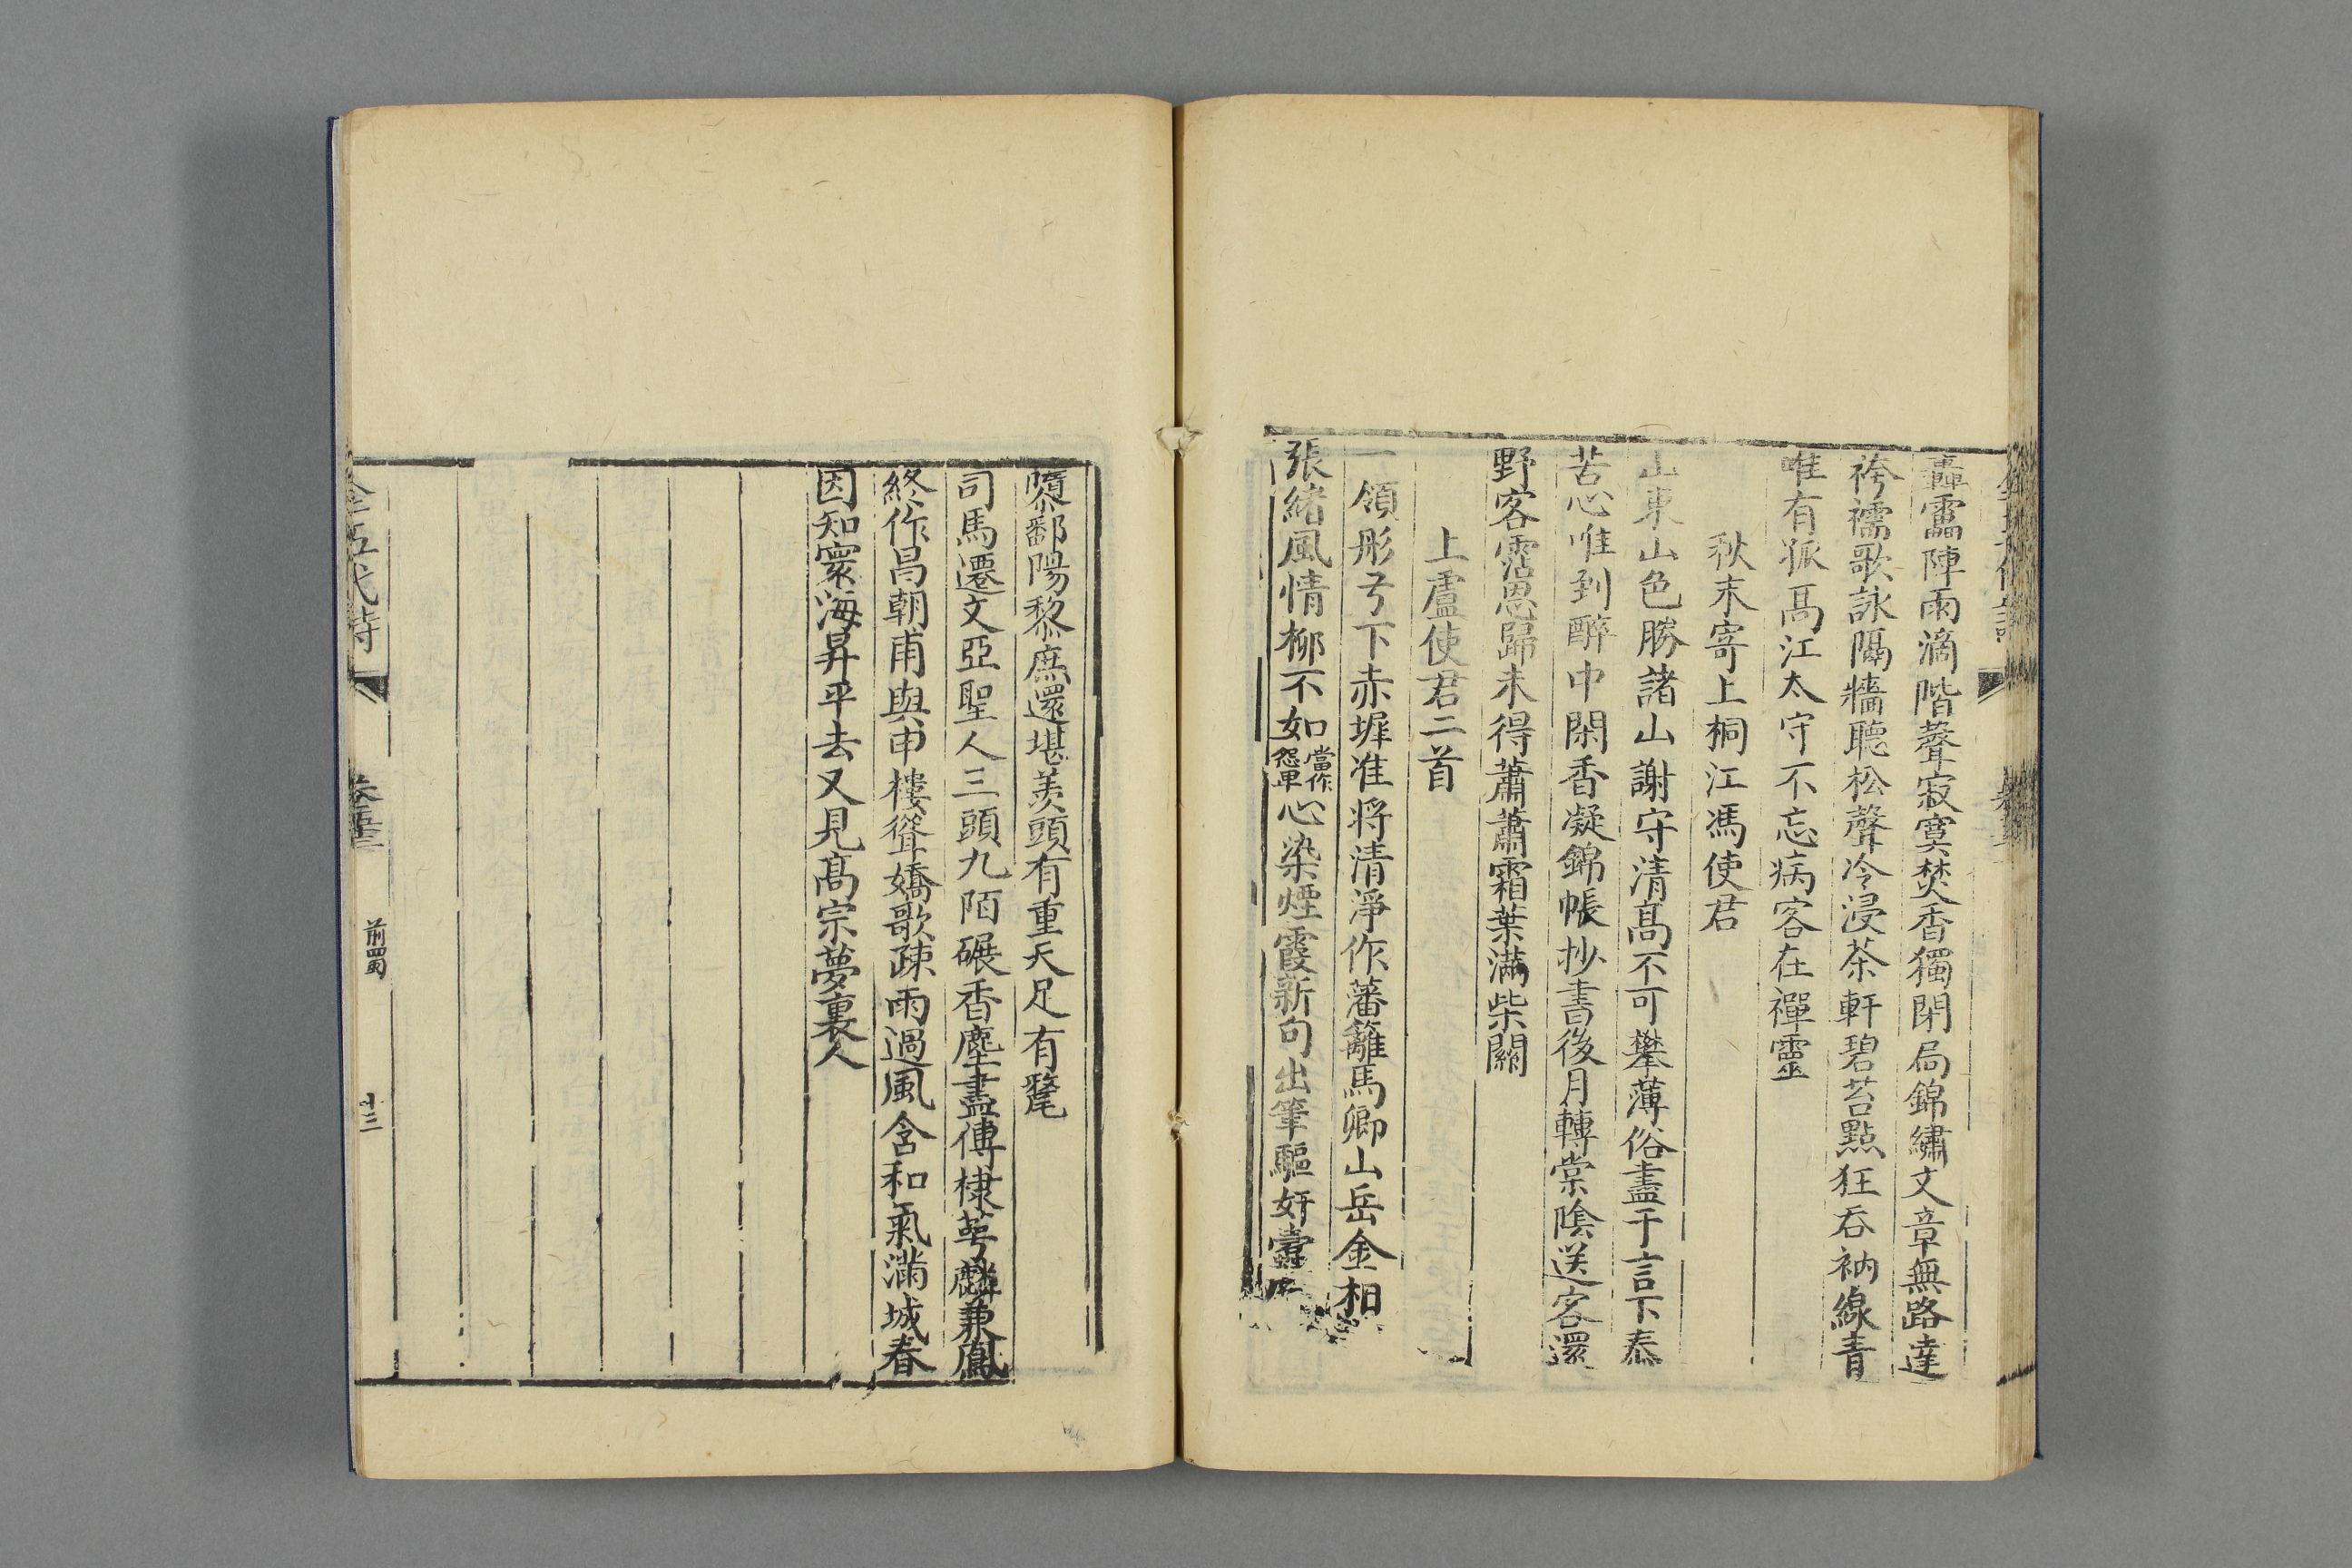 轟靁陣雨滴階聲寂寞焚香獨閉局錦繡文章無路達
袴襦歌詠隔牆聽松聲冷浸茶軒碧苔點狂吞衲線青
唯有孤高江太守不忘病客在禪靈
秋末寄上桐江馮使君
山東山色勝諸山謝守清高不可攀薄俗盡于言下泰
苦心唯到醉中閑香凝錦帳抄書後月轉棠陰送客還
野客霑恩歸未得蕭蕭霜葉滿柴關
上盧使君二首
一領彤弓下赤墀准將清淨作藩籬馬卿山岳金相
張緒風情柳不如當作怨單心染煙霞新句出筆驅奸蠹
隳鄱陽黎庶還堪羨頭有重天足有氂
司馬遷文亞聖人三頭九陌碾香塵盡傅棣萼麟兼鳳
終作昌朝甫與申樓聳嬌歌疎雨過風含和氣滿城春
因知寰海昇平去又見高宗夢裏人
全五代詩 卷五三 前蜀 十三